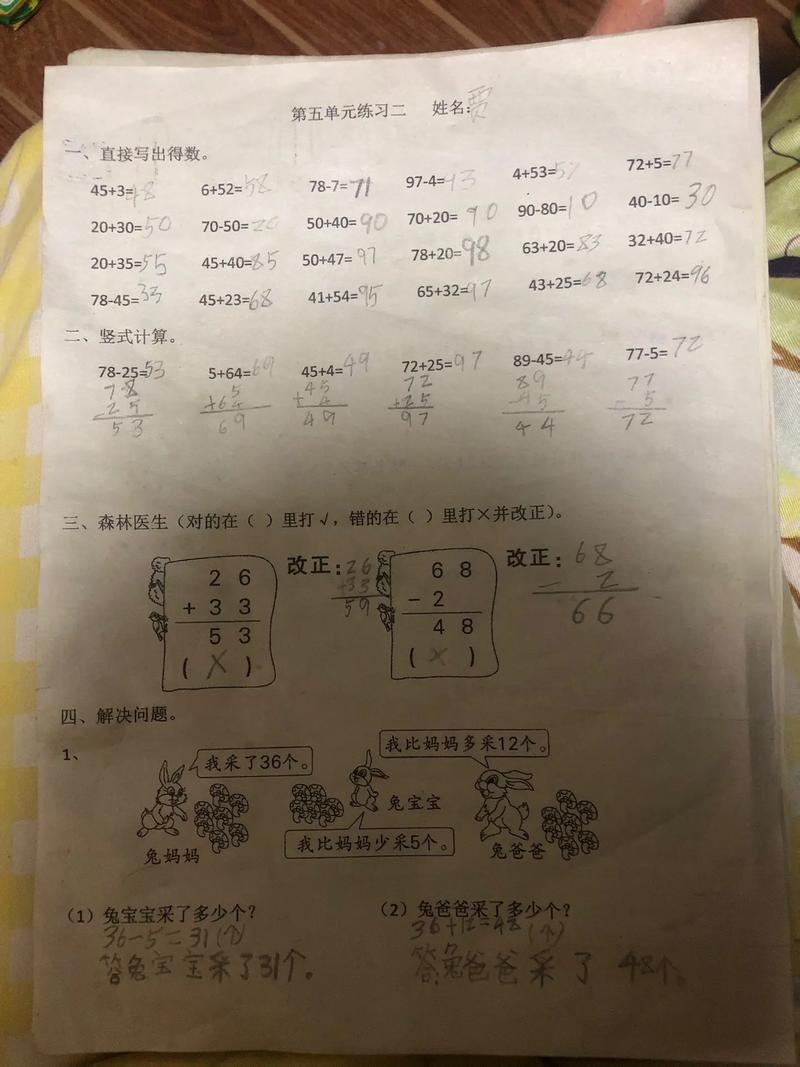 第五单元练习二 姓名:贾
一、直接写出得数。
45+3=48 6+52=58 78-7=71 97-4=93 4+53=57 72+5=77
20+30=50 70-50=20 50+40=90 70+20=90 90-80=10 40-10=30
20+35=55 45+40=85 50+47=97 78+20=98 63+20=83 32+40=72
78-45=33 45+23=68 41+54=95 65+32=97 43+25=68 72+24=96
二、竖式计算。
78-25=53 5+64=69 45+4=49 72+25=97 89-45=44 77-5=72
78 5 45 72 89 77
-25 +64 +4 +25 -45 -5
53 69 49 97 44 72
三、森林医生（对的在（ ）里打√，错的在（ ）里打×并改正）。
26 改正：26 68 改正：68
+33 +33 -2 -2
53 59 48 66
(×) (×)
四、解决问题。
1、
我比妈妈多采12个。
我采了36个。
兔宝宝
我比妈妈少采5个。
兔妈妈 兔爸爸
（1）兔宝宝采了多少个？ （2）兔爸爸采了多少个？
36-5=31(个) 36+12=48(个)
答兔宝宝采了31个。 答兔爸爸采了48个。